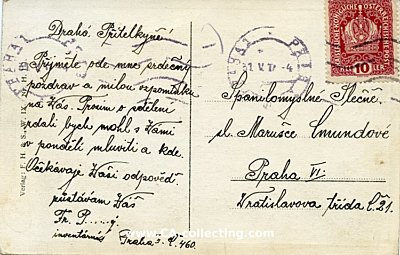 Drahá Přítelkyně!
Přijměte ode mne srdečný
pozdrav a milou vzpomínku
na Vás. Prosím o sdělení
zdali bych mohl s Vámi
v pondělí mluviti a kde.
Očekávaje Vaší odpovědi
zůstávám Váš
Fr.
inventárník
Praha 3. č. 460.
Spanilomyslné Slečně
sl. Marusce Šmundové
Praha VI.
Vratislavova třída č. 21.
10
www.CA-collecting.com